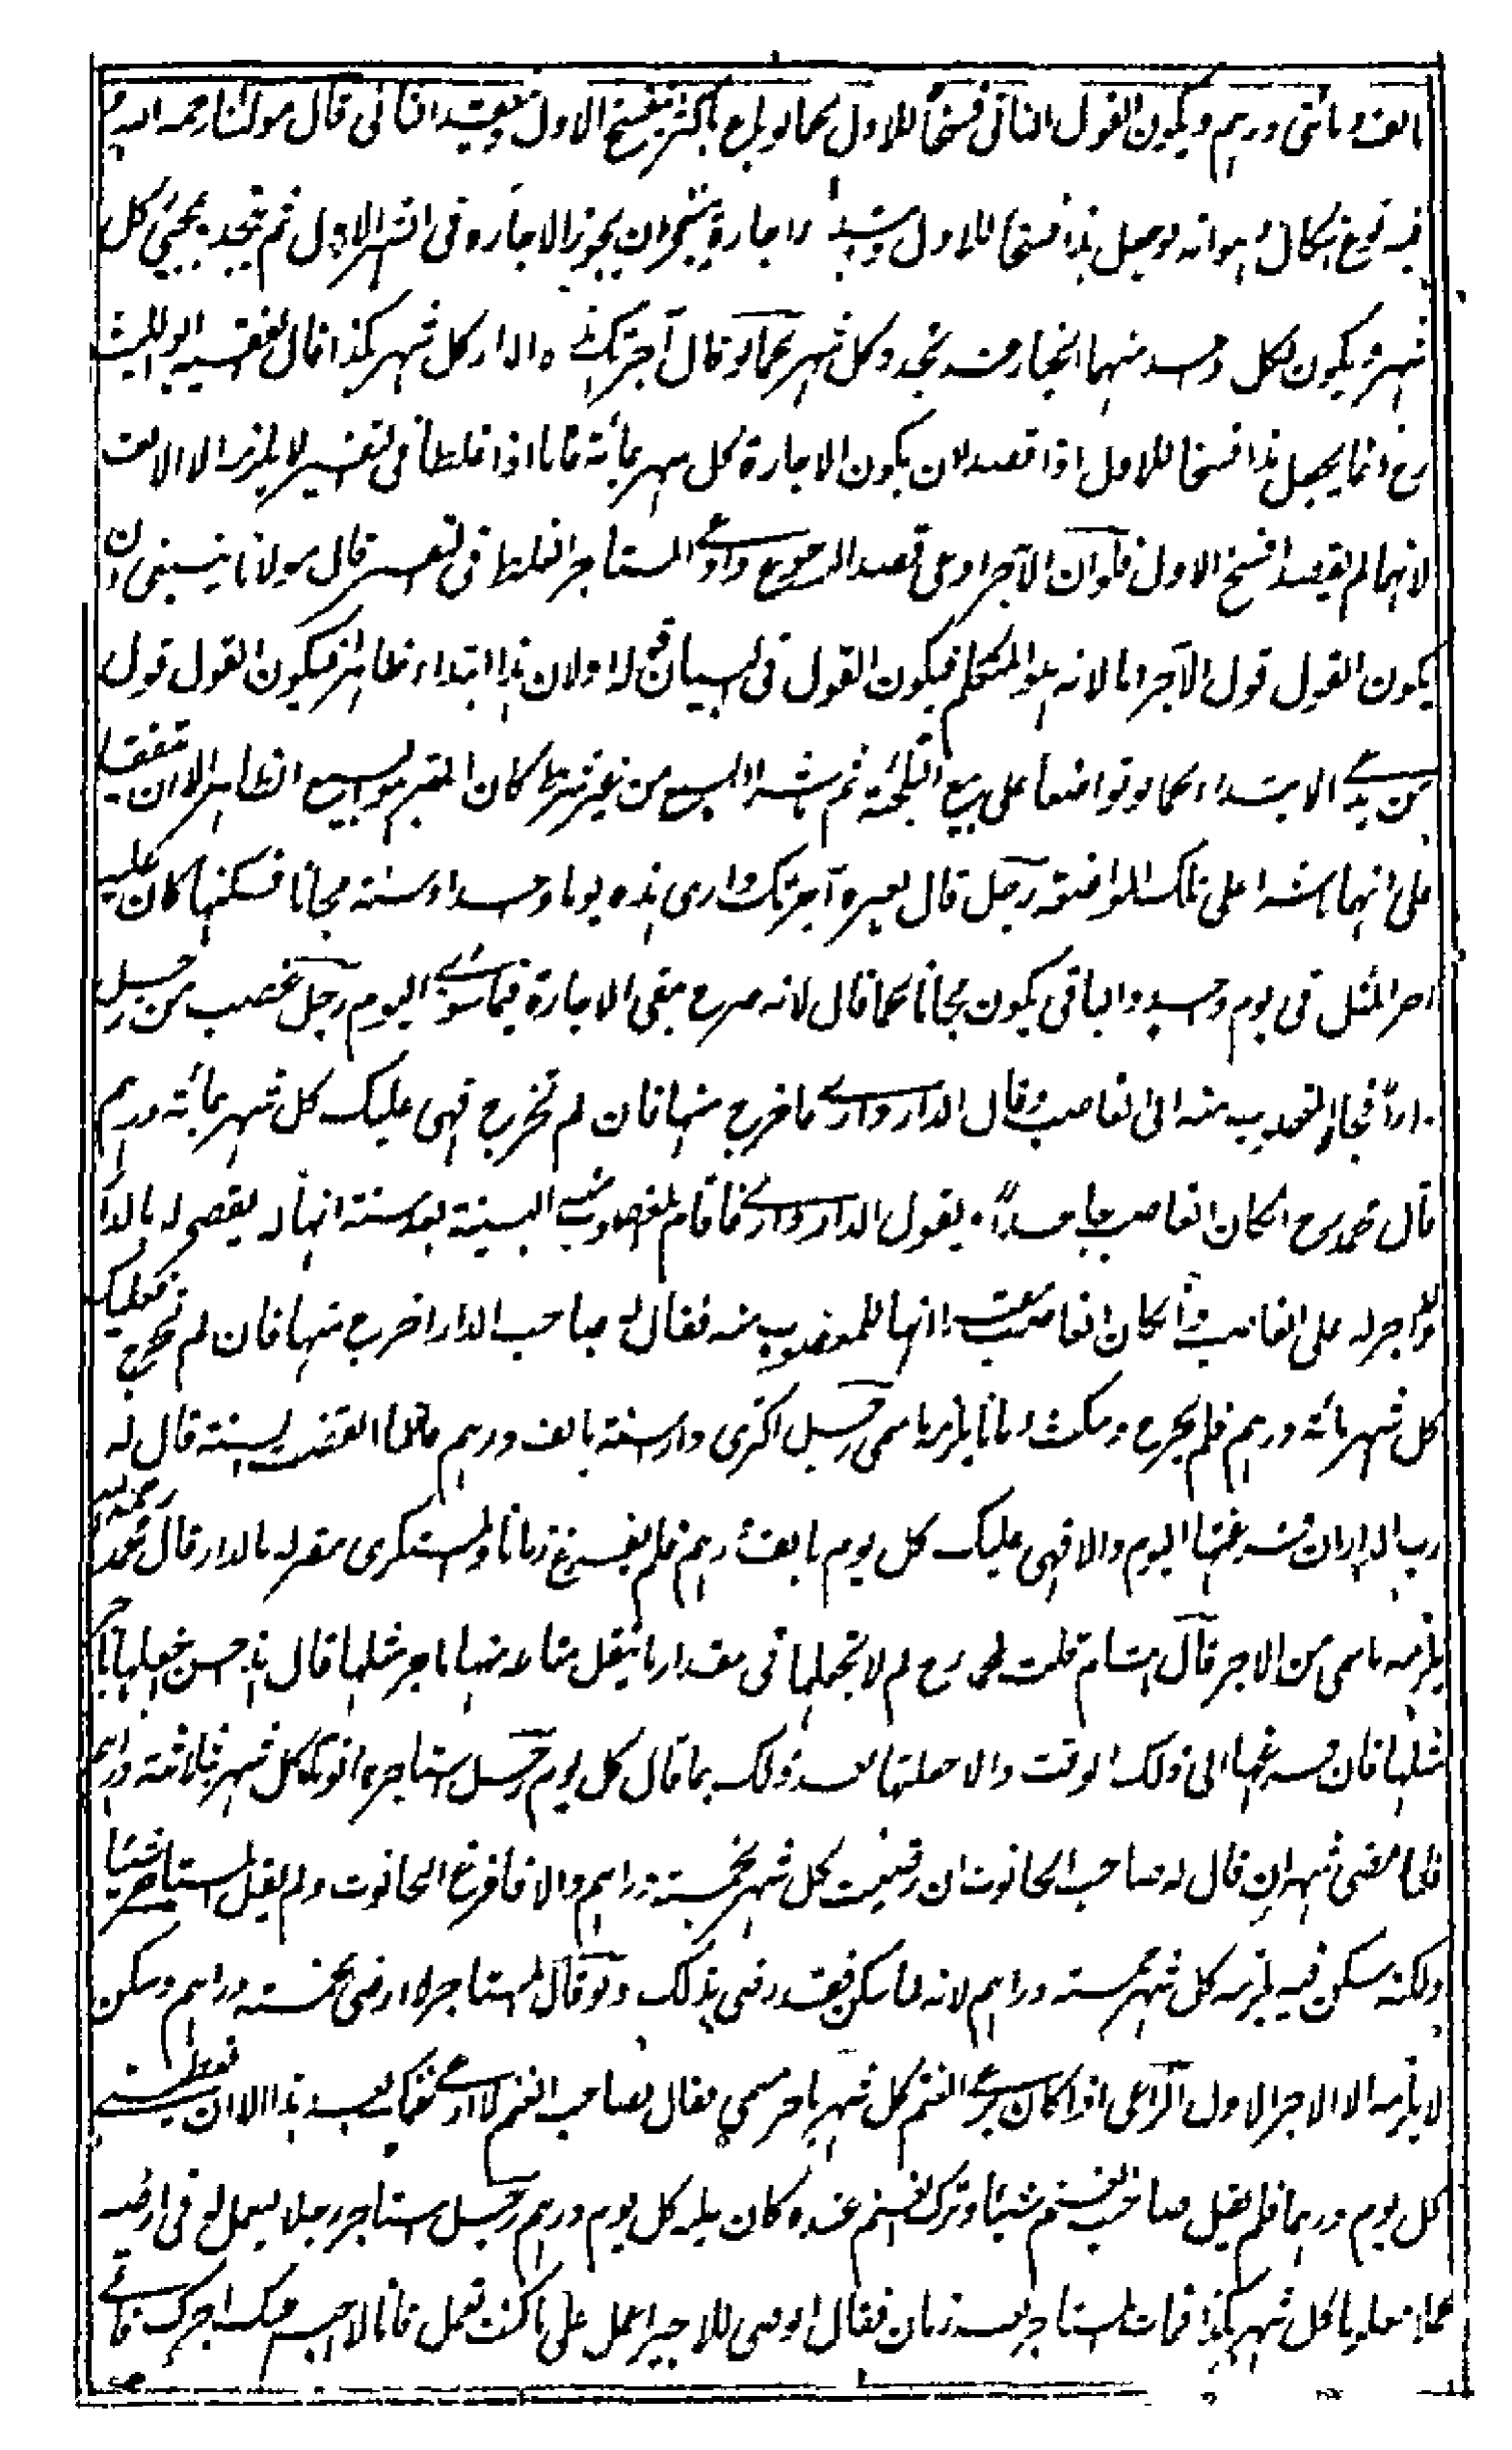 الف ومائتى درهم ويكون القول الثانى فسخا للاول كما لو باع باكثر ينفسخ الاول وينعقد الثانى قال مولانا رحمه الله و
فيه نوع اشكال وهو انه لو جعل هذا فسخا للاول و اجارة ينبغى ان يجوز الاجارة فى الشهر الاول ثم يتجدد بمجيئ كل
شهر ويكون لكل واحد منهما الخيار عند تجدد كل شهر كما لو قال آجرتك هذه الدار كل شهر بكذا قال الفقيه ابو الليث
رح انما يجعل هذا فسخا للاول اذا قصدا ان يكون الاجارة كل شهر بمائة فاما اذا غلطا فى التفسير لا يلزمه الا الالف
لانهما لم يقصدا فسخ الاول فلو ان الآجر ادعى قصد الرجوع وادعى المستاجر الغلط فى التفسير قال مولانا ينبغى ان
يكون القول قول الآجر اما لانه هو المتكلم فيكون القول فى البيان قوله او لان هذا ابتداء ظاهرا فيكون القول قول
من يدعى الابتداء كما لو تواضعا على بيع التلجئة ثم باشرا البيع من غير شرط كان المعتبر هو البيع الظاهر الا ان يتفقا
على انهما باشرا على تلك المواضعة رجل قال لغيره آجرتك دارى هذه يوما واحدا وسنة مجانا فسكنها كان عليه
اجر المثل فى يوم واحد والباقى يكون مجانا كما قال لانه صرح بنفى الاجارة فيما سوى اليوم رجل غصب من رجل
دارا فجاء المغصوب منه الى الغاصب وقال الدار دارى فاخرج منها فان لم تخرج فهى عليك كل شهر بمائة درهم
قال محمد رح ان كان الغاصب جاحدا ويقول الدار دارى فاقام المغصوب البينة بعد سنة انها له يقضى له بالدار
ولا اجر له على الغاصب وان كان الغاصب انها للمغصوب منه فقال له صاحب الدار اخرج منها فان لم تخرج فعليك
كل شهر مائة درهم فلم يخرج وسكث زمانا يلزمه ما سمى رجل اكترى دارا سنة بالف درهم فلما انقضت السنة قال له
رب الدار ان فرغتها اليوم والا فهى عليك كل يوم بالف درهم فلم يفرغ زمانا والمستكرى مقر له بالدار قال محمد رحمه الله
يلزمه ما سمى من الاجر قال هشام قلت لمحمد رح لم لا تجعلها فى مقدار ما ينقل متاعه منها باجر مثلها قال هذا حسن اجعلها باجر
مثلها فان فرغها الى ذلك الوقت والا جعلتها بعد ذلك بما قال كل يوم رجل استاجر حانوتا كل شهر بثلاثة دراهم
فلما مضى شهران قال له صاحب الحانوت ان رضيت كل شهر بخمسة دراهم والا فافرغ الحانوت ولم يقل المستاجر شيئا
ولكنه سكن فيه يلزمه كل شهر خمسة دراهم لانه لما سكن فقد رضى بذلك ولو قال المستاجر لا ارضى بخمسة دراهم وسكن
لا يلزمه الا الاجر الاول الراعى اذا كان يرعى الغنم كل شهر باجر مسمى فقال لصاحب الغنم لا ارعى غنمك بعد هذا الا ان تعطينى
كل يوم درهما فلم يقل صاحب الغنم شيئا وترك الغنم عنده كان عليه كل يوم درهم رجل استاجر رجلا ليعمل له فى ارضه
عملا معلوما كل شهر بكذا فمات المستاجر بعد زمان فقال الوصى للاجير اعمل على ما كنت تعمل فانا لا احبس عنك اجرك فاتى